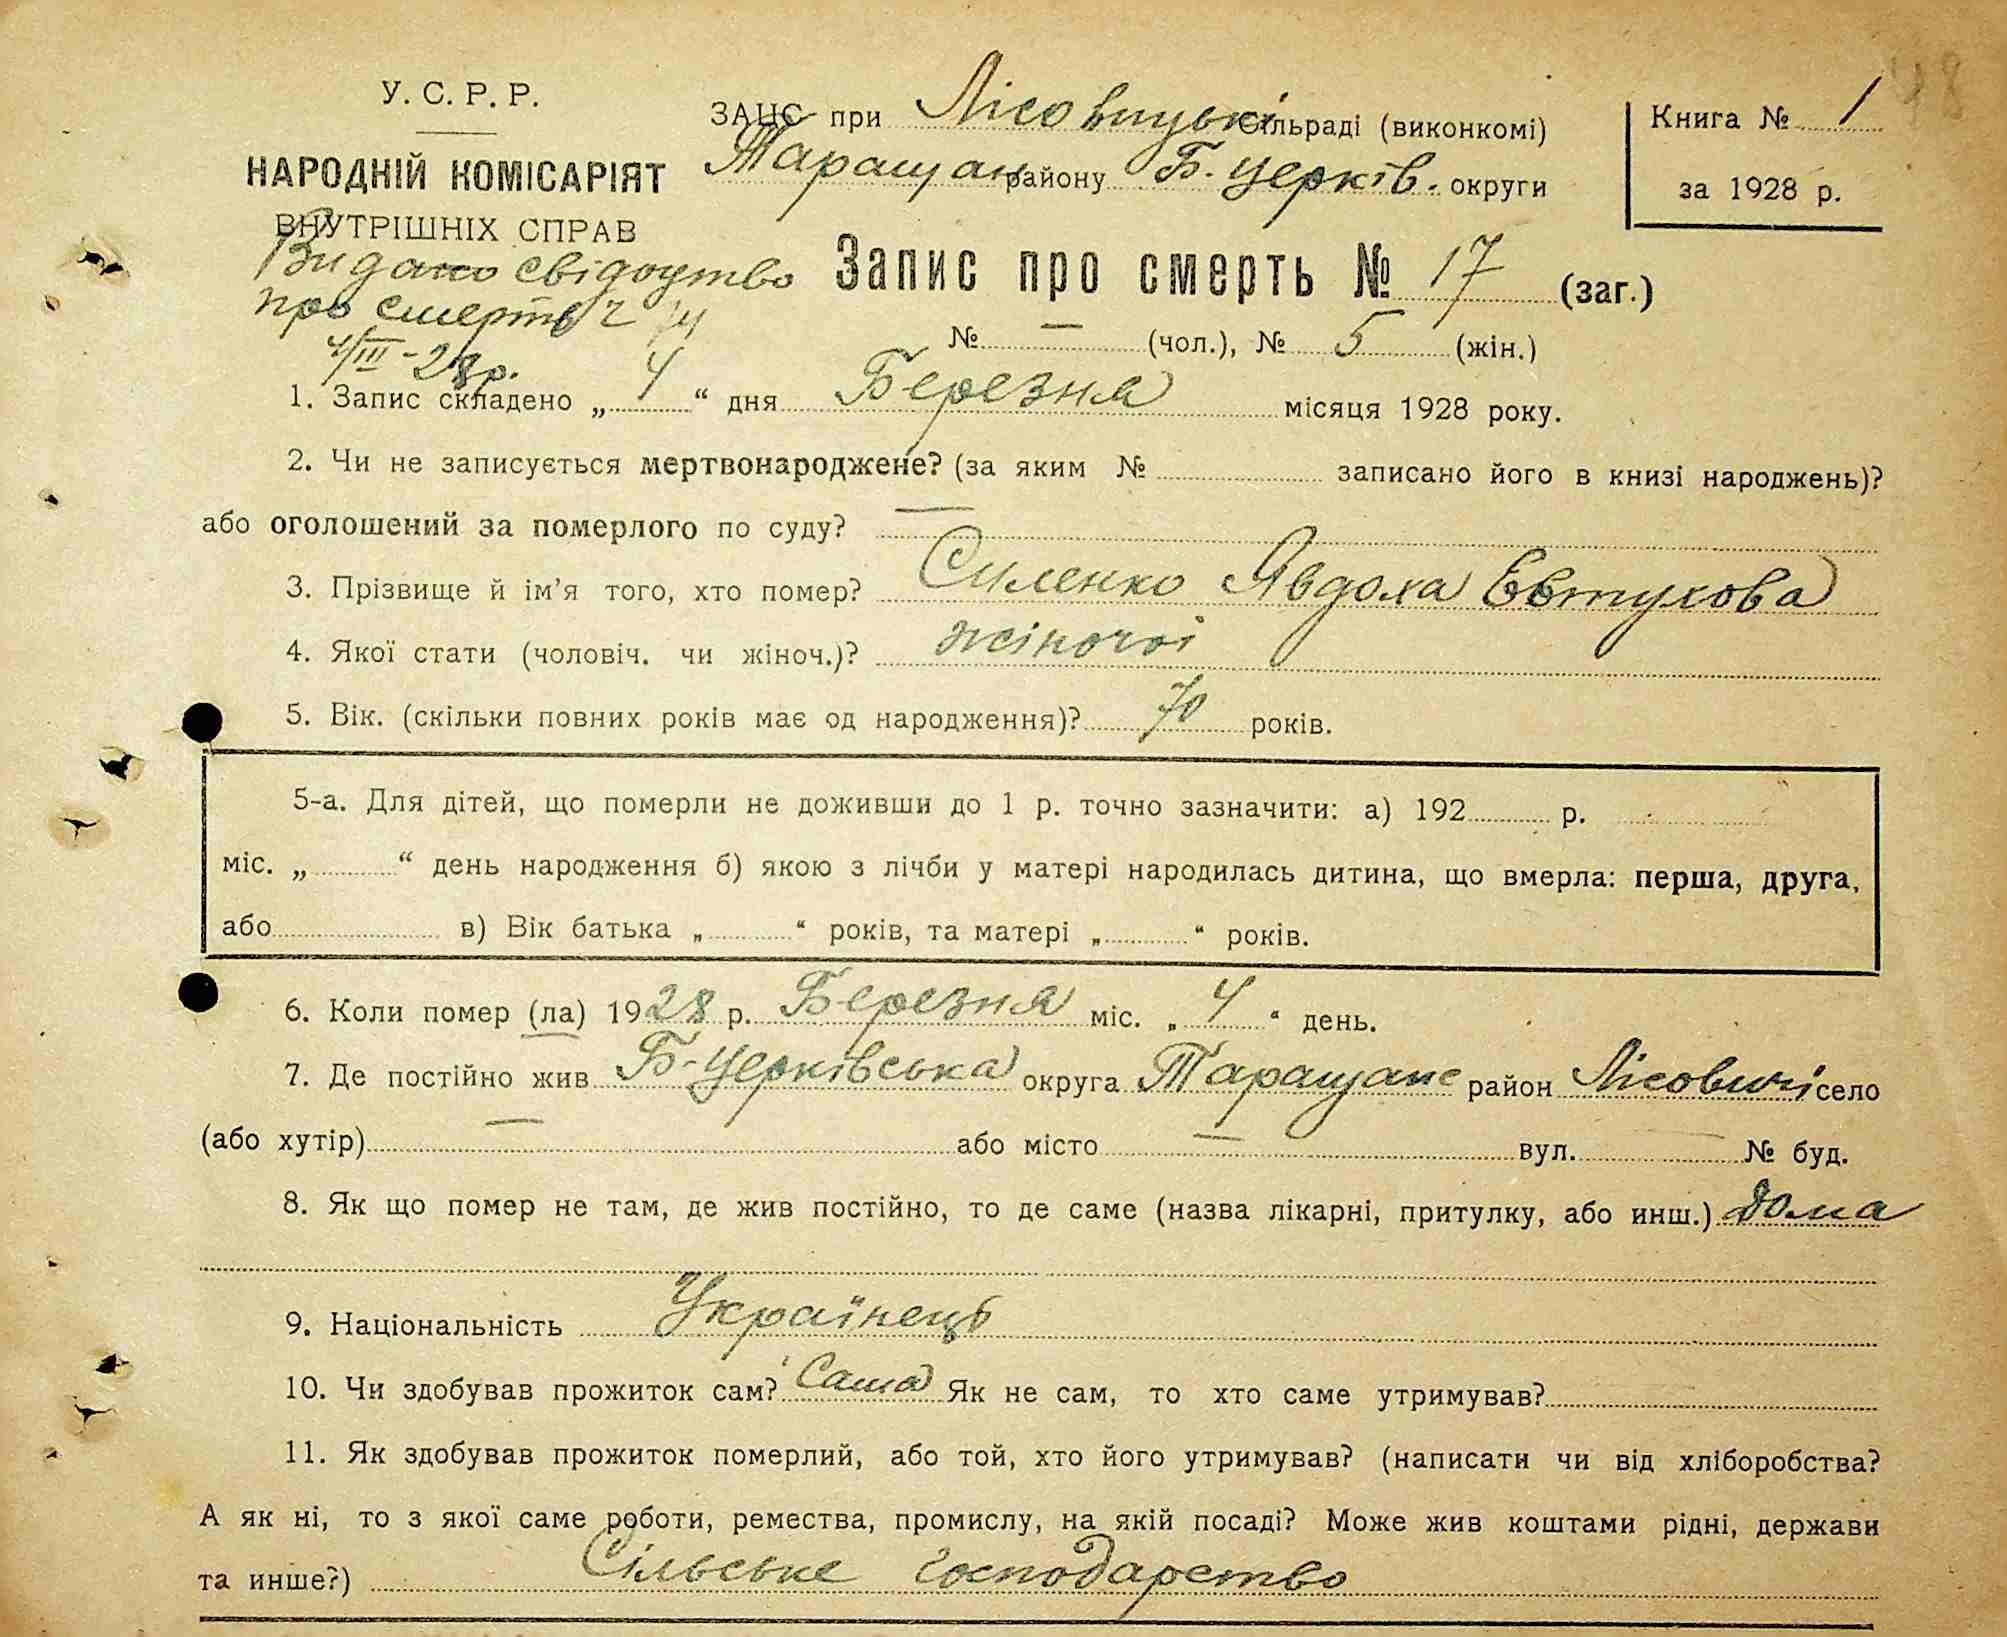 У. С. Р. Р.
НАРОДНІЙ КОМІСАРІЯТ
ВНУТРІШНІХ СПРАВ
Видано свідоцтво
про смерть
4/III-28р.
ЗАЦС при Лісовицькі сільраді (виконкомі)
Таращан району Б. Церків. округи
Книга № 1
за 1928 р.
Запис про смерть № 17 (заг.)
№ — (чол.), № 5 (жін.)
1. Запис складено „ 4 “ дня Березня місяця 1928 року.
2. Чи не записується мертвонароджене? (за яким № записано його в книзі народжень)?
або оголошений за померлого по суду? —
3. Прізвище й ім’я того, хто помер? Силенко Явдоха Евтухова
4. Якої стати (чоловіч. чи жіноч.)? жіночоі
5. Вік. (скільки повних років має од народження)? 70 років.
5-а. Для дітей, що померли не доживши до 1 р. точно зазначити: а) 192 р.
міс. „ “ день народження б) якою з лічби у матері народилась дитина, що вмерла: перша, друга,
або в) Вік батька „ “ років, та матері „ “ років.
6. Коли помер (ла) 1928 р. Березня міс. „ 4 “ день.
7. Де постійно жив Б-Церківська округа Таращанс район Лісовичі село
(або хутір) — або місто — вул. — № буд.
8. Як що помер не там, де жив постійно, то де саме (назва лікарні, притулку, або инш.) дома
9. Національність Українець
10. Чи здобував прожиток сам? Сама Як не сам, то хто саме утримував?
11. Як здобував прожиток померлий, або той, хто його утримував? (написати чи від хліборобства?
А як ні, то з якої саме роботи, ремества, промислу, на якій посаді? Може жив коштами рідні, держави
та инше?) Сільське господарство